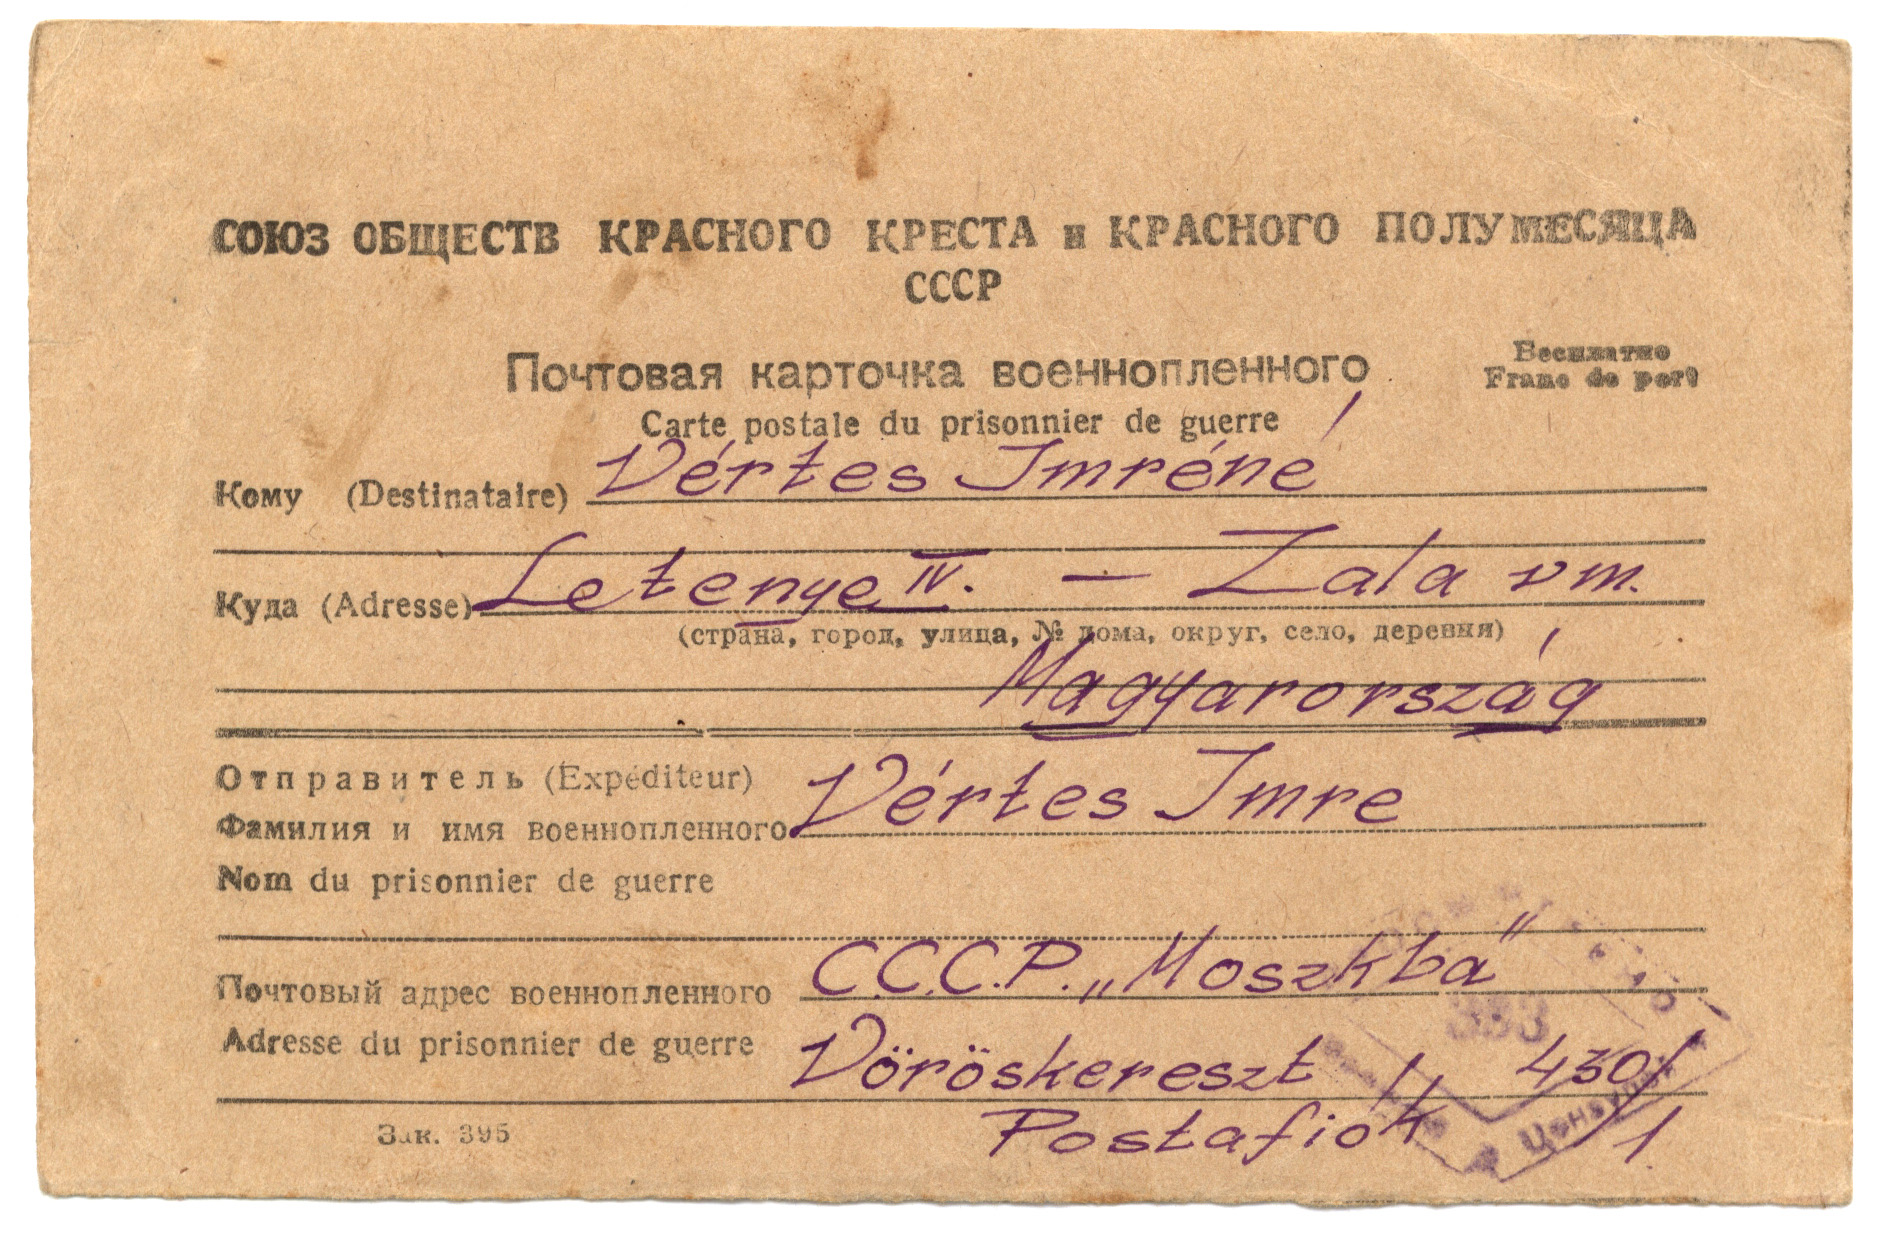 СОЮЗ ОБЩЕСТВ КРАСНОГО КРЕСТА и КРАСНОГО ПОЛУМЕСЯЦА
СССР
Почтовая карточка военнопленного
Бесплатно
Franc de port
Carte postale du prisonnier de guerre
Кому (Destinataire) Vértes Imréné
Куда (Adresse) Letenye IV. — Zala vm.
(страна, город, улица, № дома, округ, село, деревня)
Magyarország
Отправитель (Expéditeur)
Фамилия и имя военнопленного Vértes Imre
Nom du prisonnier de guerre
Почтовый адрес военнопленного C.C.C.P. „Moszkba"
Adresse du prisonnier de guerre Vöröskereszt 430/1
Postafiók
Зак. 395
353